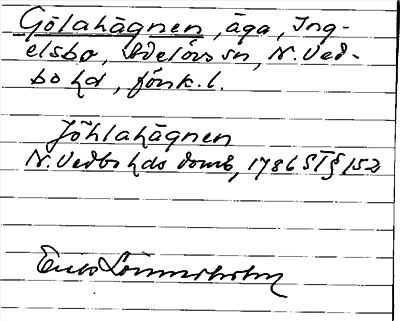 Gölahägnen, äga, Ing-
elsbo, Adelövs sn, N. Ved-
bo hd, förk. l.
Jöhlahägnen
N. Vedbo hds domb, 1786 ST § 152